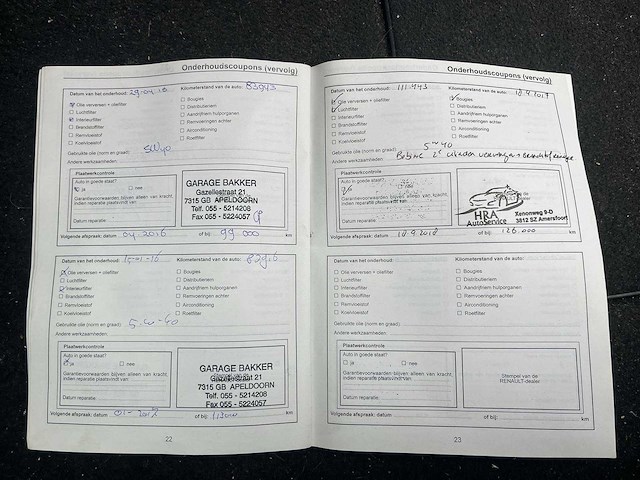 Onderhoudscoupons (vervolg)
Datum van het onderhoud: Kilometerstand van de auto:
Olie verversen + oliefilter
Luchtfilter
Interieurfilter
Brandstoffilter
Remvloeistof
Koelvloeistof
Bougies
Distributieriem
Aandrijfriem hulporganen
Remvoeringen achter
Airconditioning
Roetfilter
Gebruikte olie (norm en graad):
Andere werkzaamheden:
Plaatwerkcontrole
Auto in goede staat?
ja nee
Garantievoorwaarden blijven alleen van kracht
indien reparatie plaatsvindt van:
Datum reparatie:
GARAGE BAKKER
Gazellestraat 21
7315 GB APELDOORN
Telf. 055 - 5214208
Fax 055 - 5224057
Volgende afspraak: datum 04 2016 of bij: 99 000 km
Datum van het onderhoud: Kilometerstand van de auto:
Olie verversen + oliefilter
Luchtfilter
Interieurfilter
Brandstoffilter
Remvloeistof
Koelvloeistof
Bougies
Distributieriem
Aandrijfriem hulporganen
Remvoeringen achter
Airconditioning
Roetfilter
Gebruikte olie (norm en graad): 5-w-40
Andere werkzaamheden:
Plaatwerkcontrole
Auto in goede staat?
ja nee
Garantievoorwaarden blijven alleen van kracht
indien reparatie plaatsvindt van:
Datum reparatie:
GARAGE BAKKER
Gazellestraat 21
7315 GB APELDOORN
Telf. 055 - 5214208
Fax 055 - 5224057
Volgende afspraak: datum of bij: km
22
Onderhoudscoupons (vervolg)
Datum van het onderhoud: 111.443 Kilometerstand van de auto: 18.9.2017
Olie verversen + oliefilter
Luchtfilter
Interieurfilter
Brandstoffilter
Remvloeistof
Koelvloeistof
Bougies
Distributieriem
Aandrijfriem hulporganen
Remvoeringen achter
Airconditioning
Roetfilter
Gebruikte olie (norm en graad): 5 w 40
Andere werkzaamheden: Bobine 2e cilinder
Plaatwerkcontrole
Auto in goede staat?
ja nee
Garantievoorwaarden blijven alleen van kracht
indien reparatie plaatsvindt van:
Datum reparatie:
HRA
AutoService
Xenonweg 9-D
3812 SZ Amersfoort
Volgende afspraak: datum 18.9.2018 of bij: 126.000 km
Datum van het onderhoud: Kilometerstand van de auto:
Olie verversen + oliefilter
Luchtfilter
Interieurfilter
Brandstoffilter
Remvloeistof
Koelvloeistof
Bougies
Distributieriem
Aandrijfriem hulporganen
Remvoeringen achter
Airconditioning
Roetfilter
Gebruikte olie (norm en graad):
Andere werkzaamheden:
Plaatwerkcontrole
Auto in goede staat?
ja nee
Garantievoorwaarden blijven alleen van kracht
indien reparatie plaatsvindt van:
Datum reparatie:
Stempel van de
RENAULT-dealer
Volgende afspraak: datum of bij: km
23